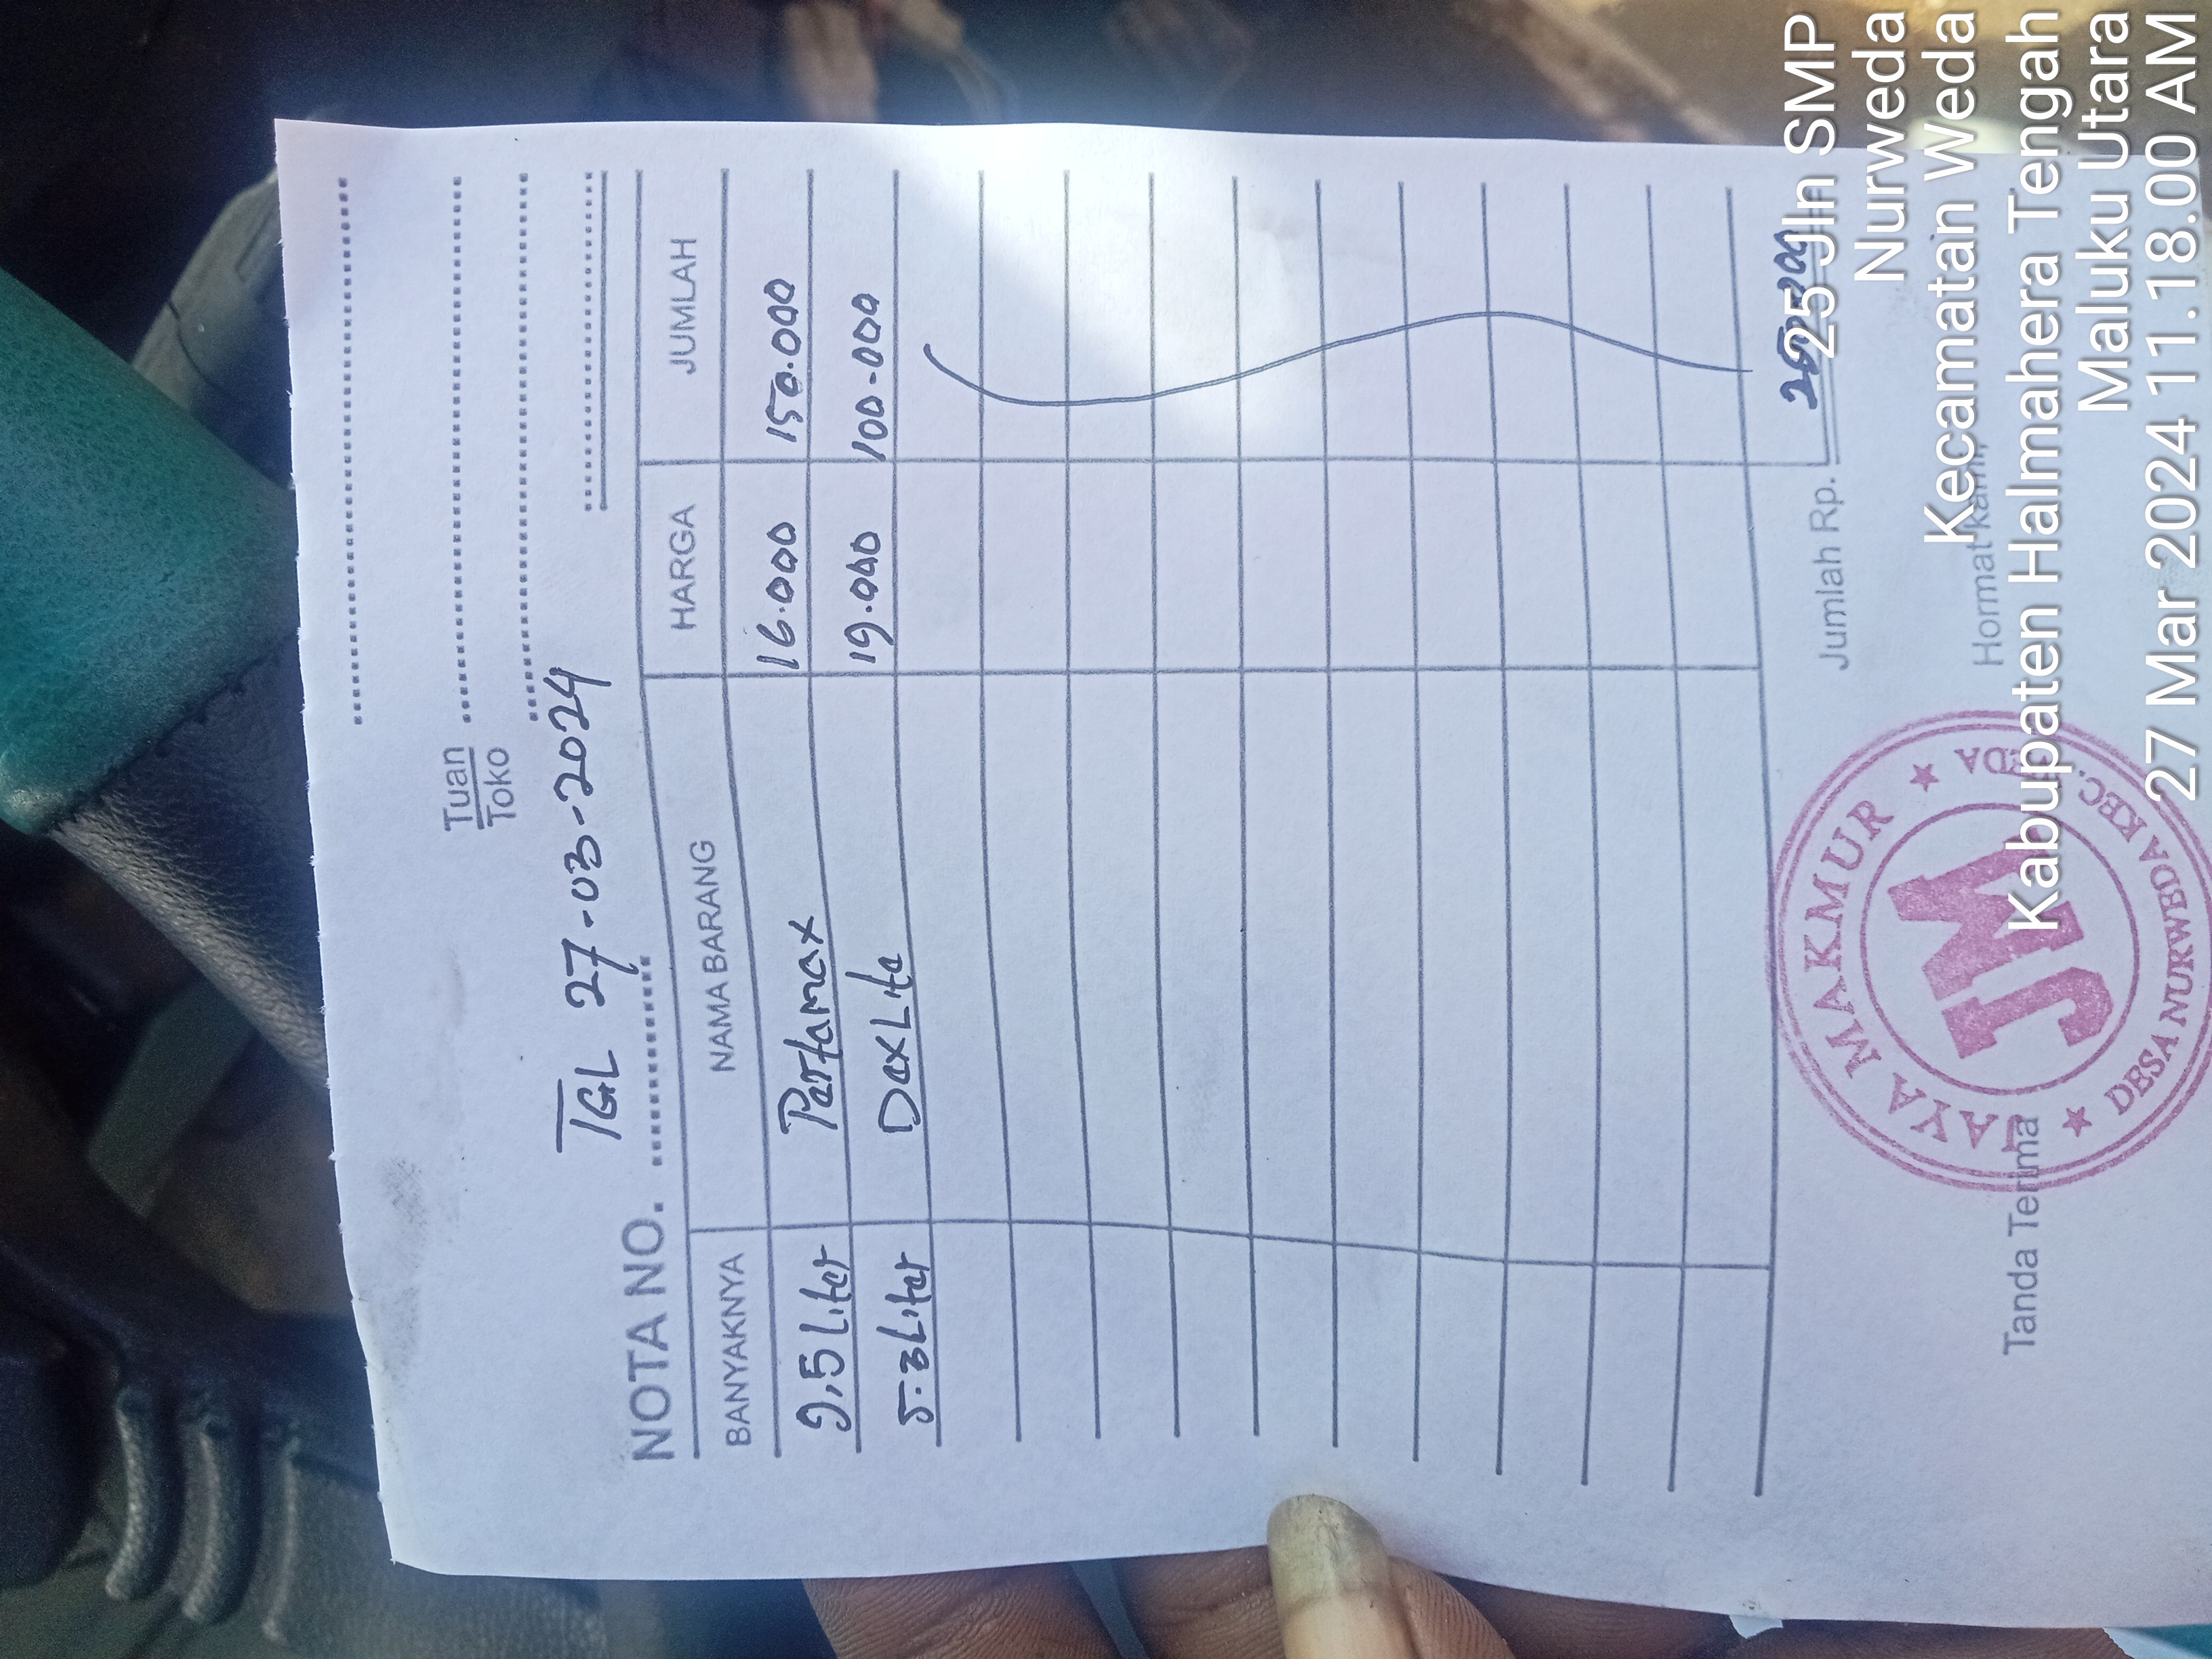 Tuan
Toko
TGL 27-03-2024
NOTA NO.
BANYAKNYA NAMA BARANG HARGA JUMLAH
9,5 Liter Pertamax 16.000 150.000
5.3 Liter DexLite 19.000 100.000
Jumlah Rp.
Tanda Terima Hormat kami,
JAYA MAKMUR
JM
DESA NURWEDA KEC. WEDA
25 Jln SMP
Nurweda
Kecamatan Weda
Kabupaten Halmahera Tengah
Maluku Utara
27 Mar 2024 11.18.00 AM